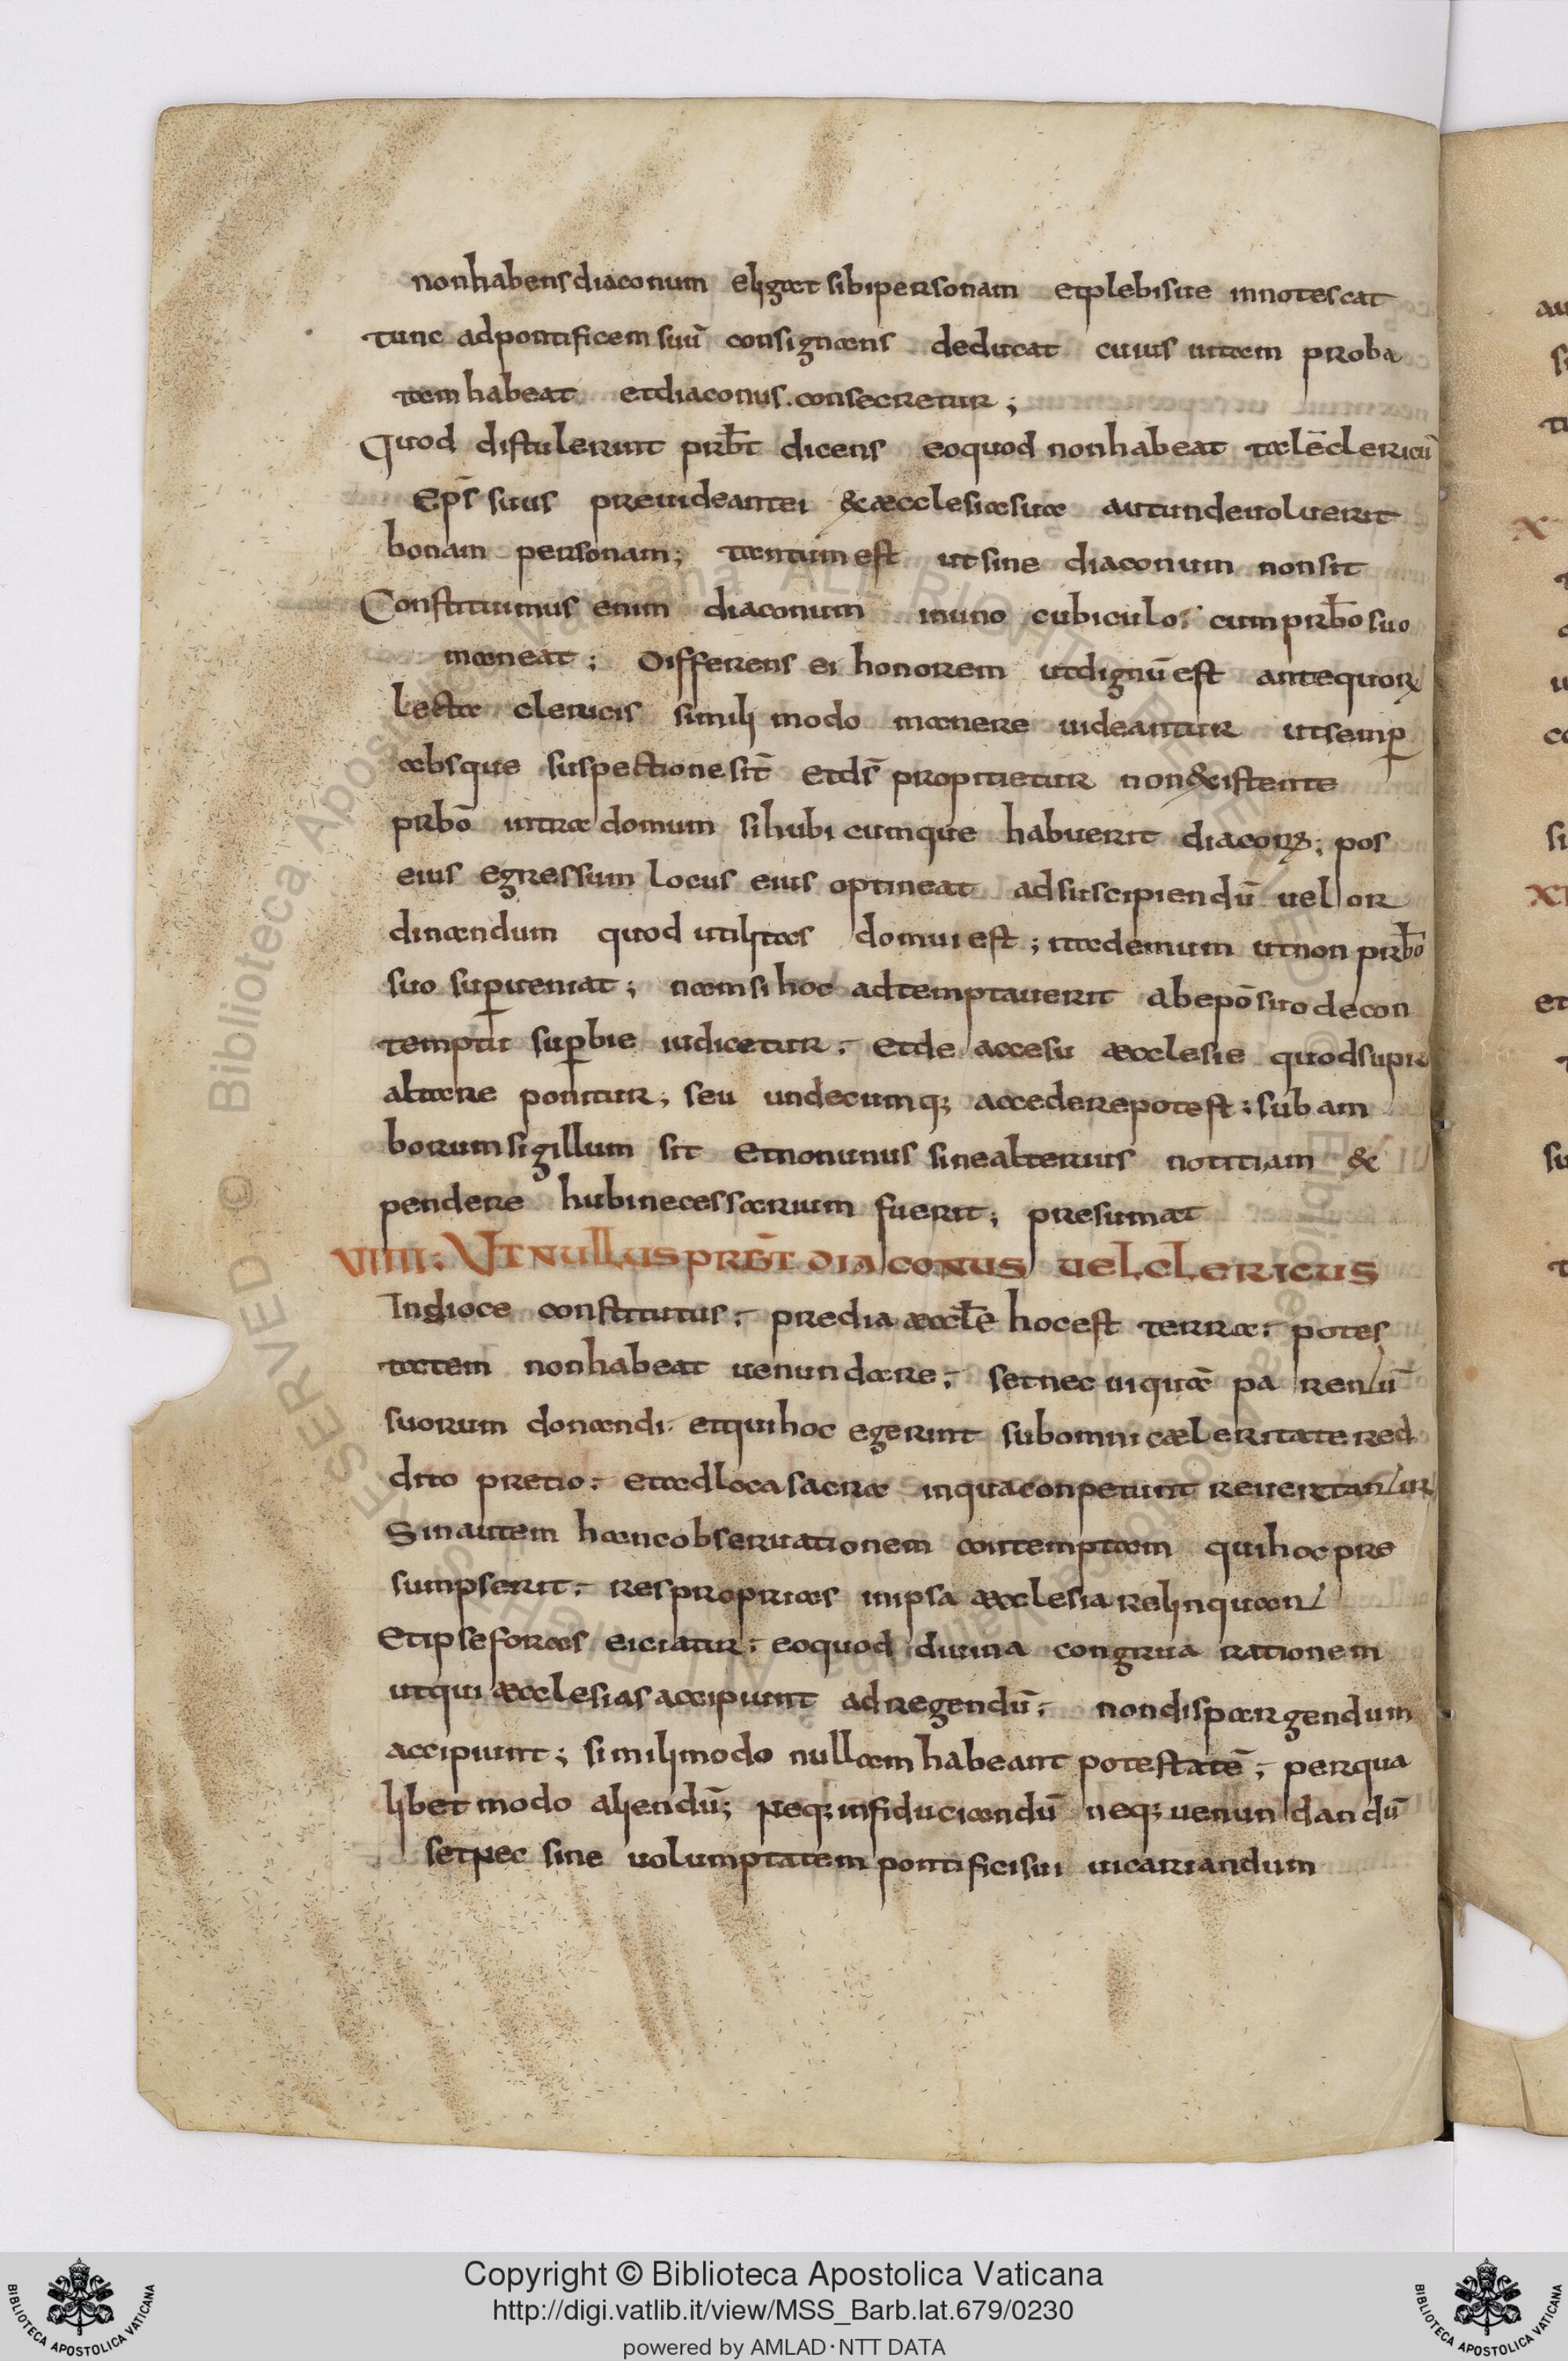 nonhabensdiaconum eligat sibipersonam etplebisue innotescat
tunc adpontificem suū consignans deducat cuius uitam proba
tam habeat etdiaconus. consecretur;
Quod distulerint prb̄t dicens eoquod nonhabeat talē clericū
Ep̄s suus preuideantei &aecclesiasua autundeuoluerit
bonam personam; tantum est utsine diaconum nonsit
Constituimus enim diaconum inuno cubiculo; cumprb̄o suo
maneat; Differens ei honorem utdignū est antequorꝝ
lecta clericis simili modo manere uideantur utsemꝑ
absque suspectione sit̄ etds̄ propitietur non&istente
prb̄o intra domum sihubi cumque habuerit diacorꝝ; pos
eius egressum locus eius optineat adsuscipiendū uel or
dinandum quod utilitas domui est; itademum utnon prb̄o
suo suꝑueniat; namsi hoc adtemptauerit abepō suo decon
temptu suꝑbie iudicetur. etde accesu aecclesie quodsupr
altare ponitur; seu undecumq; accederepotest; sub am
borumsigillum sit etnonunus sinealterius notitiam &
pendere hubinecessarium fuerit; presumat
VIIII. UT NULLUS PRB̄T DIACONUS UEL CLERICUS
Indioce constitutus; predia aeccl̄e hocest terra; potes
tatem nonhabeat uenundare; setnec uiquā parentū
suorum donandi. etquihoc egerint subomni caeleritate red
dito pretio; etadloca sacra inquaconpetunt reuertantur
Sinautem hancobseruationem contemptam quihocpre
sumpserit; resproprias inipsa aecclesia relinquant
Etipseforas eiciatur; eoquod diuina congrua rationem
utqui aecclesias accipiunt adregendū; nondispargendum
accipiunt; similimodo nullam habeant potestatē; perqua
libet modo aliendū; Neq; infiduciandū neq; uenundandū
setnec sine uolumptatem pontificisui uicariandum
Copyright © Biblioteca Apostolica Vaticana
http://digi.vatlib.it/view/MSS_Barb.lat.679/0230
powered by AMLAD·NTT DATA
BIBLIOTECA APOSTOLICA VATICANA
BIBLIOTECA APOSTOLICA VATICANA